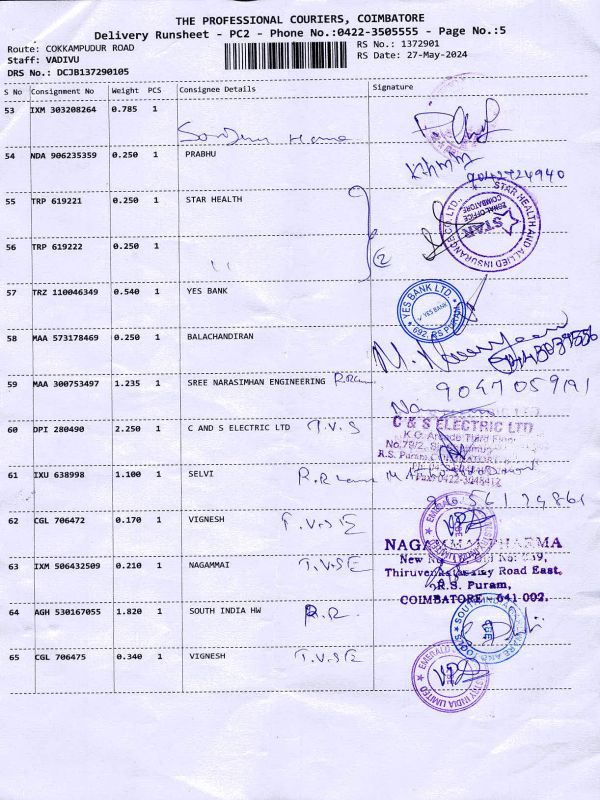 THE PROFESSIONAL COURIERS, COIMBATORE
Delivery Runsheet - PC2 - Phone No.:0422-3505555 - Page No.:5
Route: COKKAMPUDUR ROAD
RS No.: 1372901
Staff: VADIVU
RS Date: 27-May-2024
DRS No.: DCJB137290105
S No Consignment No Weight PCS Consignee Details Signature
53 IXM 303208264 0.785 1
54 NDA 906235359 0.250 1 PRABHU
9042724940
55 TRP 619221 0.250 1 STAR HEALTH
STAR HEALTH AND ALLIED INSURANCE CO LTD.,
ZONAL OFFICE
COIMBATORE
STAR
56 TRP 619222 0.250 1 " 2
57 TRZ 110046349 0.540 1 YES BANK
YES BANK LTD.
YES BANK
692, RS PURAM
58 MAA 573178469 0.250 1 BALACHANDIRAN
59 MAA 300753497 1.235 1 SREE NARASIMHAN ENGINEERING
C & S ELECTRIC LTD
60 DPI 280490 2.250 1 C AND S ELECTRIC LTD T.V.S
K.G. Arcade Third Floor
R.S. Puram,
61 IXU 638998 1.100 1 SELVI
62 CGL 706472 0.170 1 VIGNESH T.V.S
NAGAMMAI PHARMA
63 IXM 506432509 0.210 1 NAGAMMAI T.V.S
Road East,
R.S. Puram,
COIMBATORE - 641 002.
64 AGH 530167055 1.820 1 SOUTH INDIA HW R.R.
65 CGL 706475 0.340 1 VIGNESH T.V.S
EMERALD
INDIA LIMITED